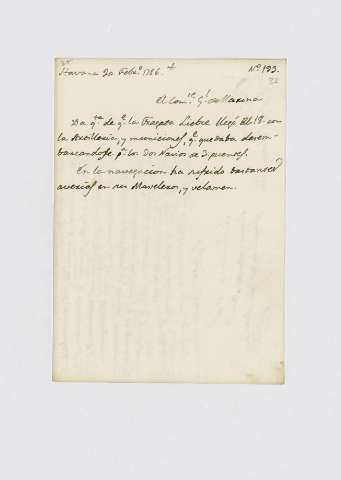 Havana 20 Feb.º 1786.
Nº 193.
El Com.te G.l de Marina
Da q.ta de q.e la Fragata Liebre llegó el 18. con
la Artilleria, y municiones q.e quedaba desem-
barcandose p.a los dos Navios de 3. puentes.
En la navegacion ha sufrido bastantes
averias en sus Masteleros, y velamen.